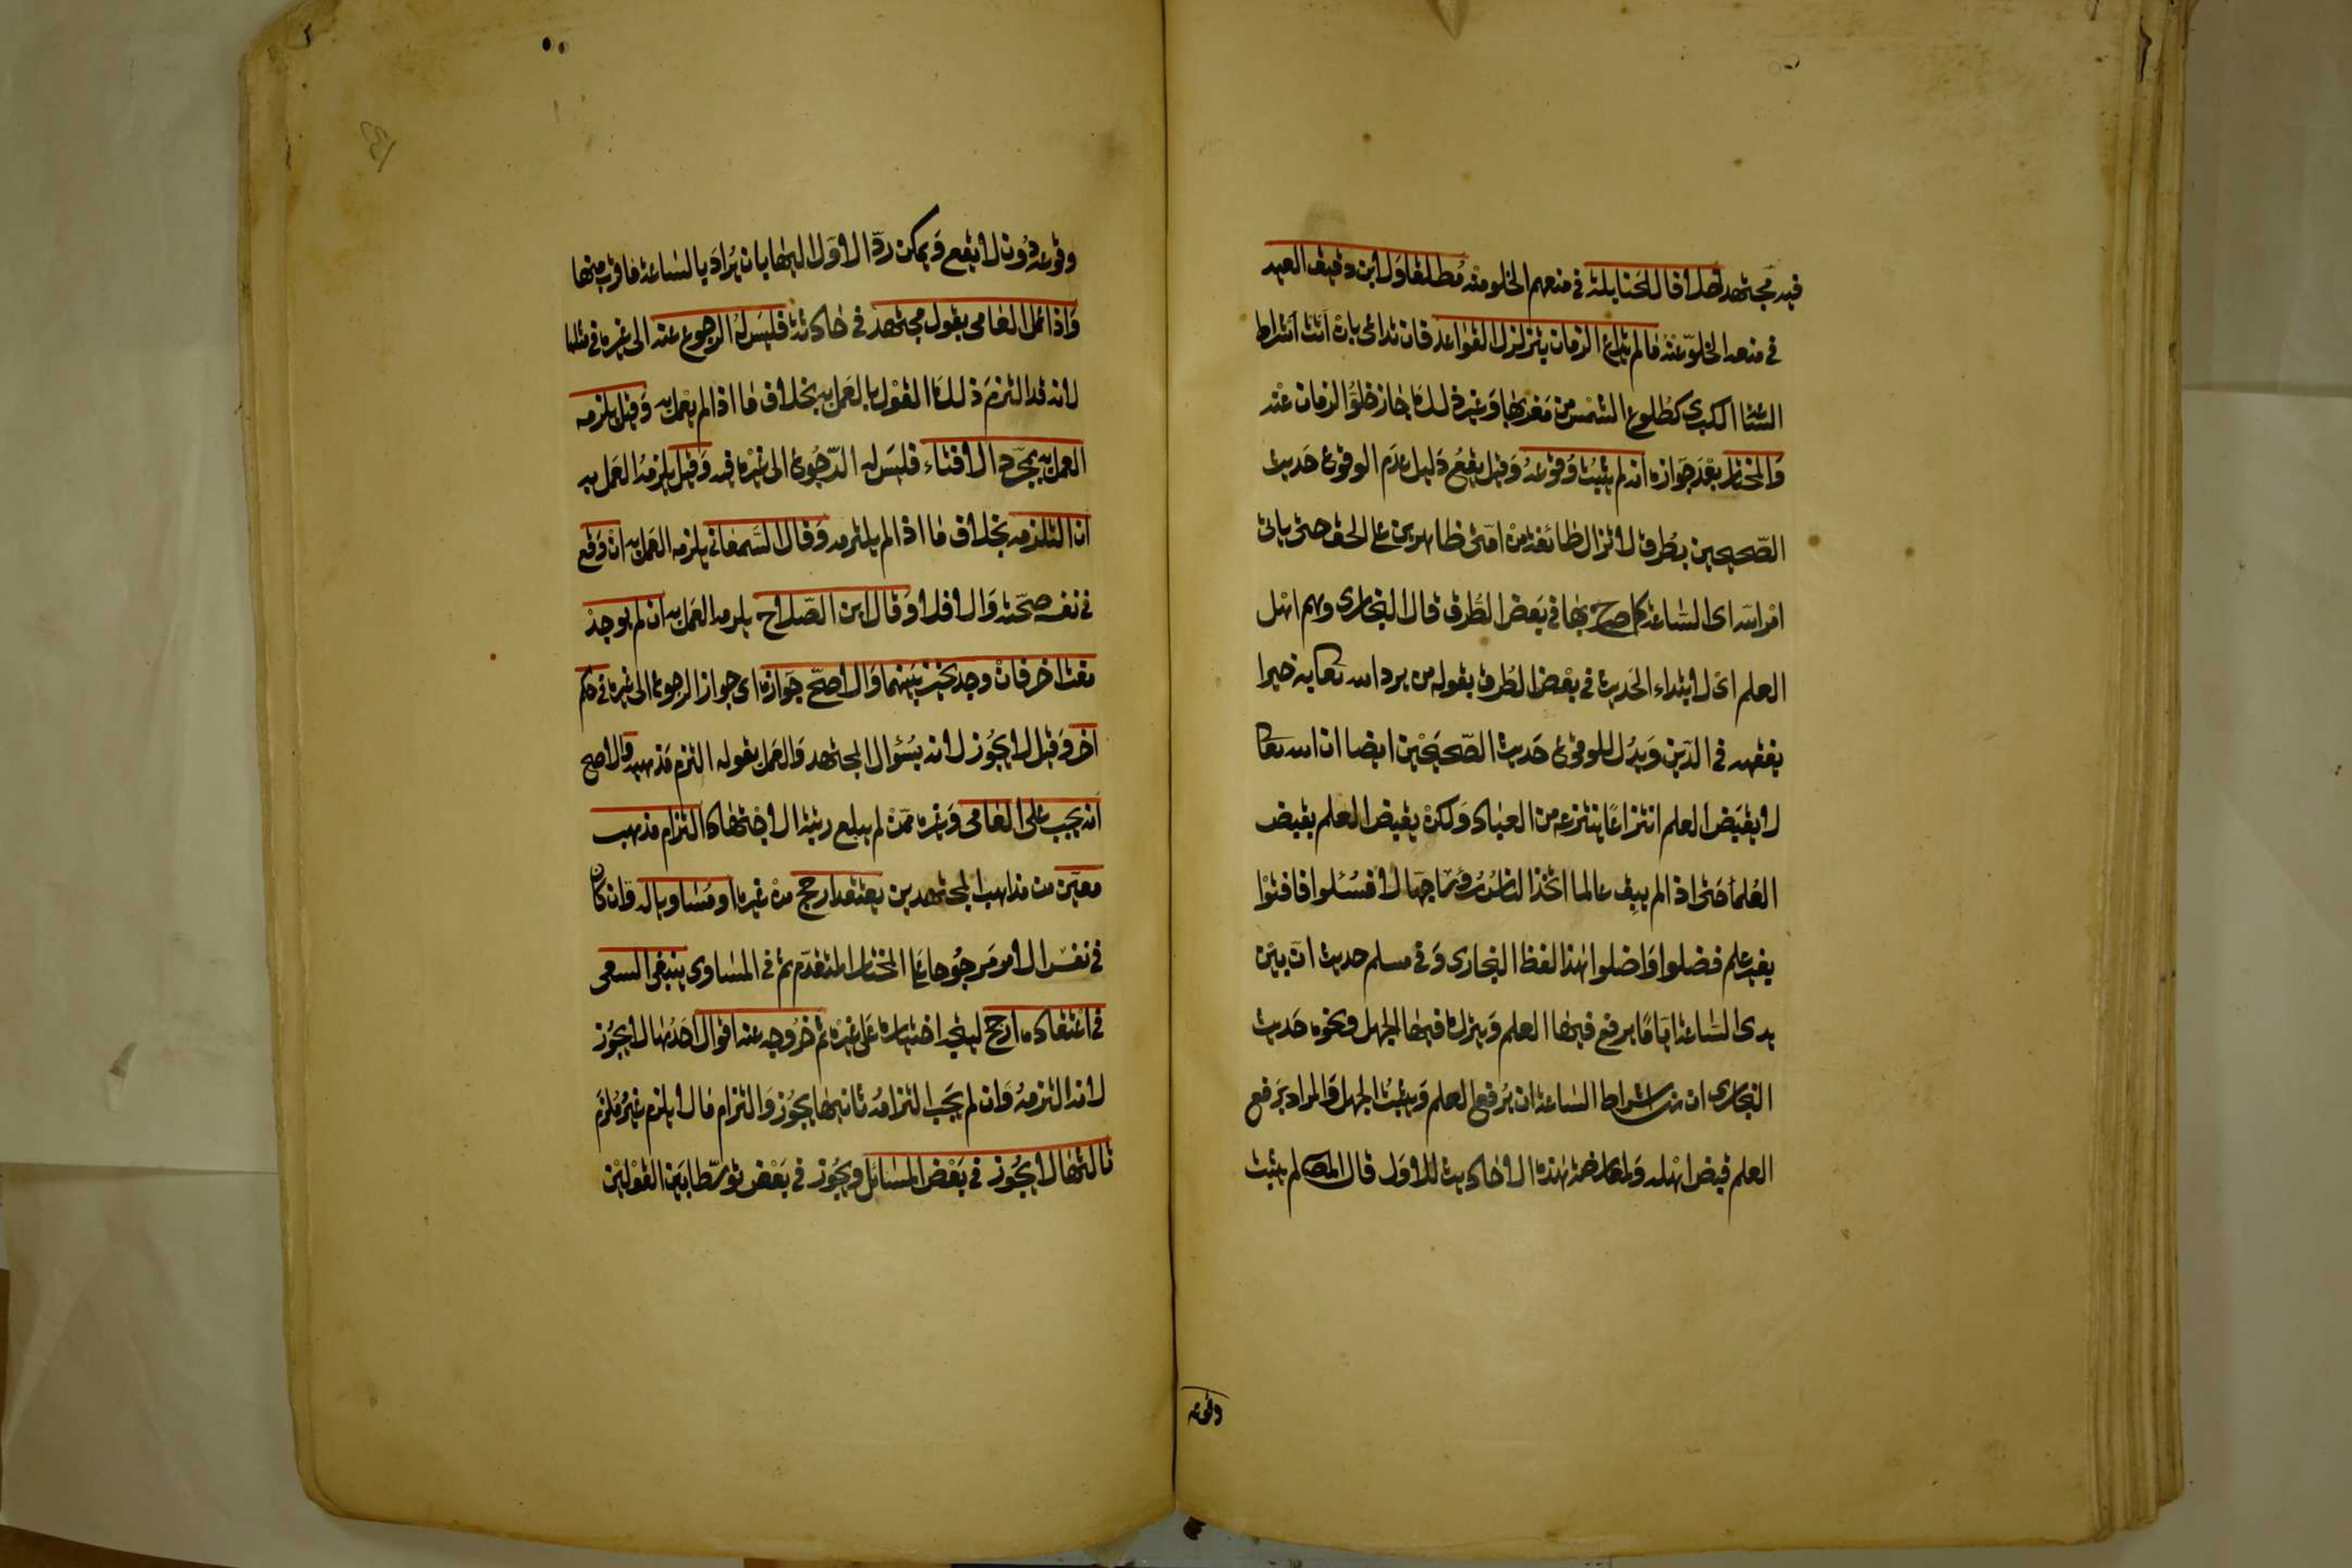 فيه مجتهد اصلا قال الحنابلة في منعهم الخلو منه مطلقا ولابن دقيق العيد
في منعه الخلو عنه ما لم يتداع الزمان بتزلزل القواعد فان تداعى بان اتت اشراط
الساعة الكبرى كطلوع الشمس من مغربها وغير ذلك جاز خلو الزمان عنه
والمختار بعد جوازه انه لم يثبت وقوعه وقيل يقع دليل عدم الوقوع حديث
الصحيحين بطرق لا تزال طائفة من امتى ظاهرين على الحق حتى ياتى
امر الله اى الساعة كما صرح بها في بعض الطرق قال البخارى وهم اهل
العلم اى لابتداء الحديث في بعض الطرق بقوله من يرد الله تعالى به خيرا
يفقهه فى الدين ويدل للوقوع حديث الصحيحين ايضا ان الله تعالى
لا يقبض العلم انتزاعا ينتزعه من العباد ولكن يقبض العلم بقبض
العلما حتى اذا لم يبق عالما اتخذ الناس رؤسا جهالا فسئلوا فافتوا
بغير علم فضلوا واضلوا هذا لفظ البخارى وفى مسلم حديث ان بين
يدى الساعة اياما يرفع فيها العلم وينزل فيها الجهل ونحوه حديث
البخارى ان من اشراط الساعة ان يرفع العلم ويثبت الجهل والمراد برفع
العلم قبض اهله ولمعارضة هذه الاحاديث للاول قال المص لم يثبت
وقوعه
وقوعه دون لا يقع ويمكن رد الاول اليها بان يراد بالساعة ما قرب منها
واذا عمل العامى بقول مجتهد في حادثة فليس له الرجوع عنه الى غيره فى مثلها
لانه قد التزم ذلك القول بالعمل به بخلاف ما اذا لم يعمل به وقيل يلزمه
العمل به بمجرد الافتاء فليس له الرجوع الى غيره فيه وقيل يلزمه العمل به
ان التزمه بخلاف ما اذا لم يلتزمه وقال السمعانى يلزمه العمل به ان وقع
في نفسه صحته والا فلا وقال ابن الصلاح يلزمه العمل به ان لم يوجد
مفت اخر فان وجد تخير بينهما والاصح جوازه اى جواز الرجوع الى غيره فى حكم
اخر وقيل لا يجوز لانه بسؤال المجتهد والعمل بقوله التزم مذهبه والاصح
انه يجب على العامى وغيره ممن لم يبلغ رتبة الاجتهاد التزام مذهب
معين من مذاهب المجتهدين يعتقده ارجح من غيره او مساويا له وان كان
في نفس الامر مرجوحا على المختار المتقدم ثم في المساوى ينبغى السعى
في اعتقاده ارجح ليتجه اختياره على غيره ثم خروجه عنه اقوال احدها لا يجوز
لانه التزمه وان لم يجب التزامه ثانيها يجوز والتزام ما لا يلزم غير ملزم
ثالثها لا يجوز في بعض المسائل ويجوز في بعض توسطا بين القولين